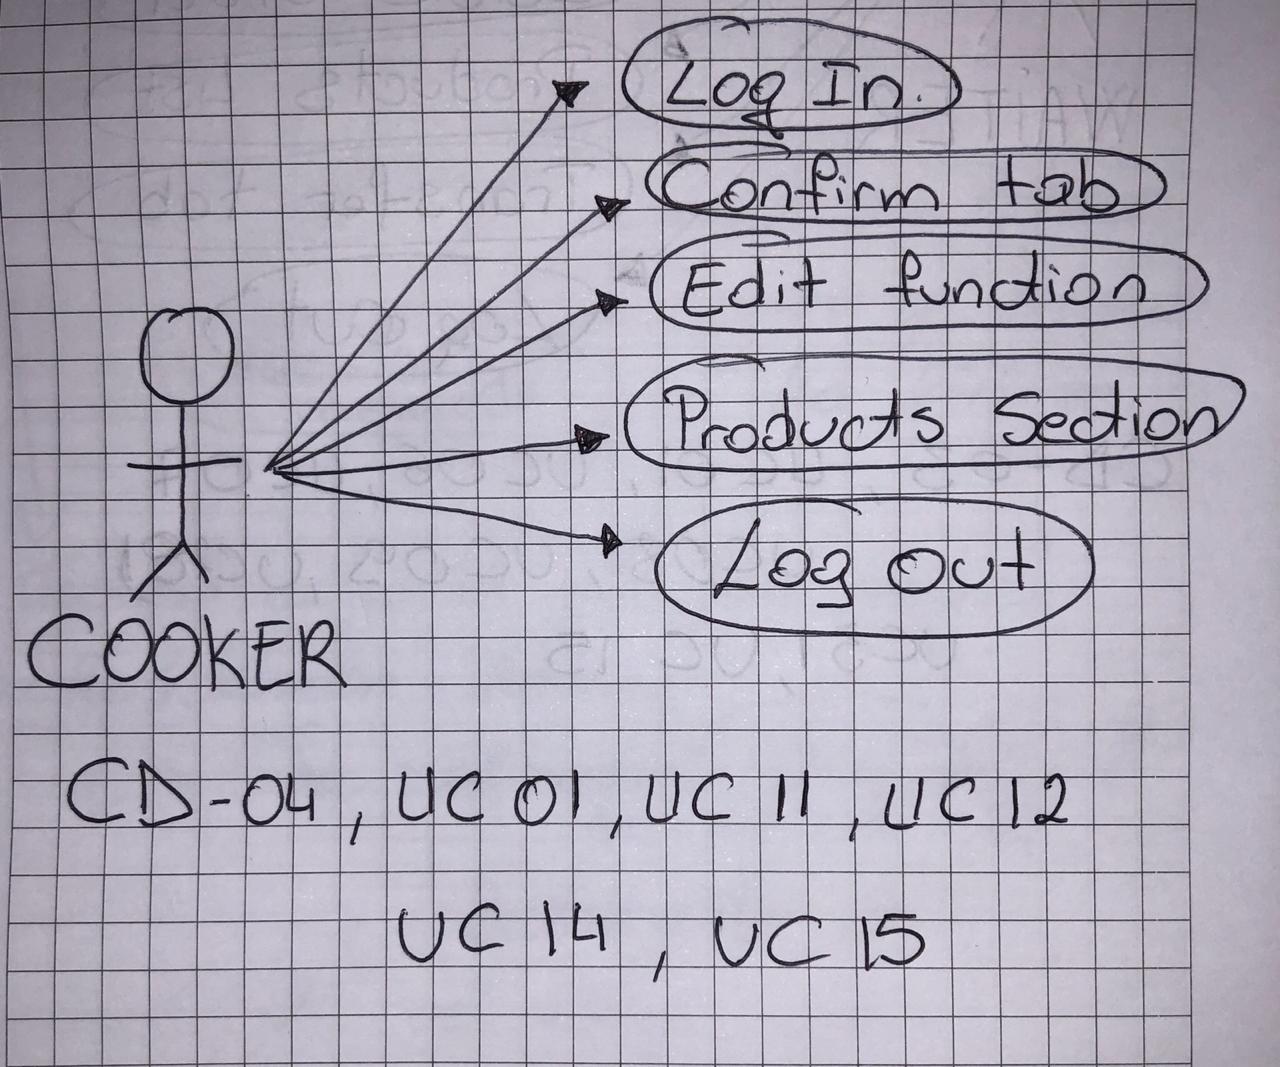 Log In.
Confirm tab
Edit function
Products Section
Log Out
COOKER
CD-04, UC 01, UC 11, UC 12
UC 14, UC 15